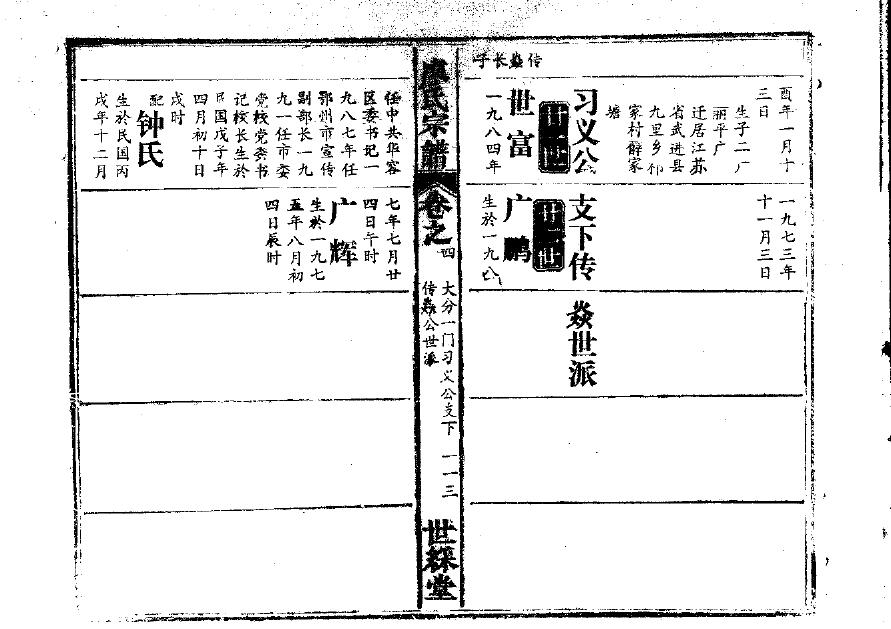 酉年一月十
三日
生子二广
丽平广
迁居江苏
省武进县
九里乡祁
家村薛家
塘
一九七三年
十一月三日
习义公支下传焱世派
传焱长子
世
世富
一九八四年
世
广鹏
生於一九八
廖氏宗譜
卷之四
大分一门习义公支下
传焱公世派
一一三
世綵堂
任中共华容
区委书记一
九八七年任
鄂州市宣传
副部长一九
九一任市委
党校党委书
记校长生於
民国戊子年
四月初十日
戌时
配钟氏
生於民国丙
戌年十二月
七年七月廿
四日午时
广辉
生於一九七
五年八月初
四日辰时